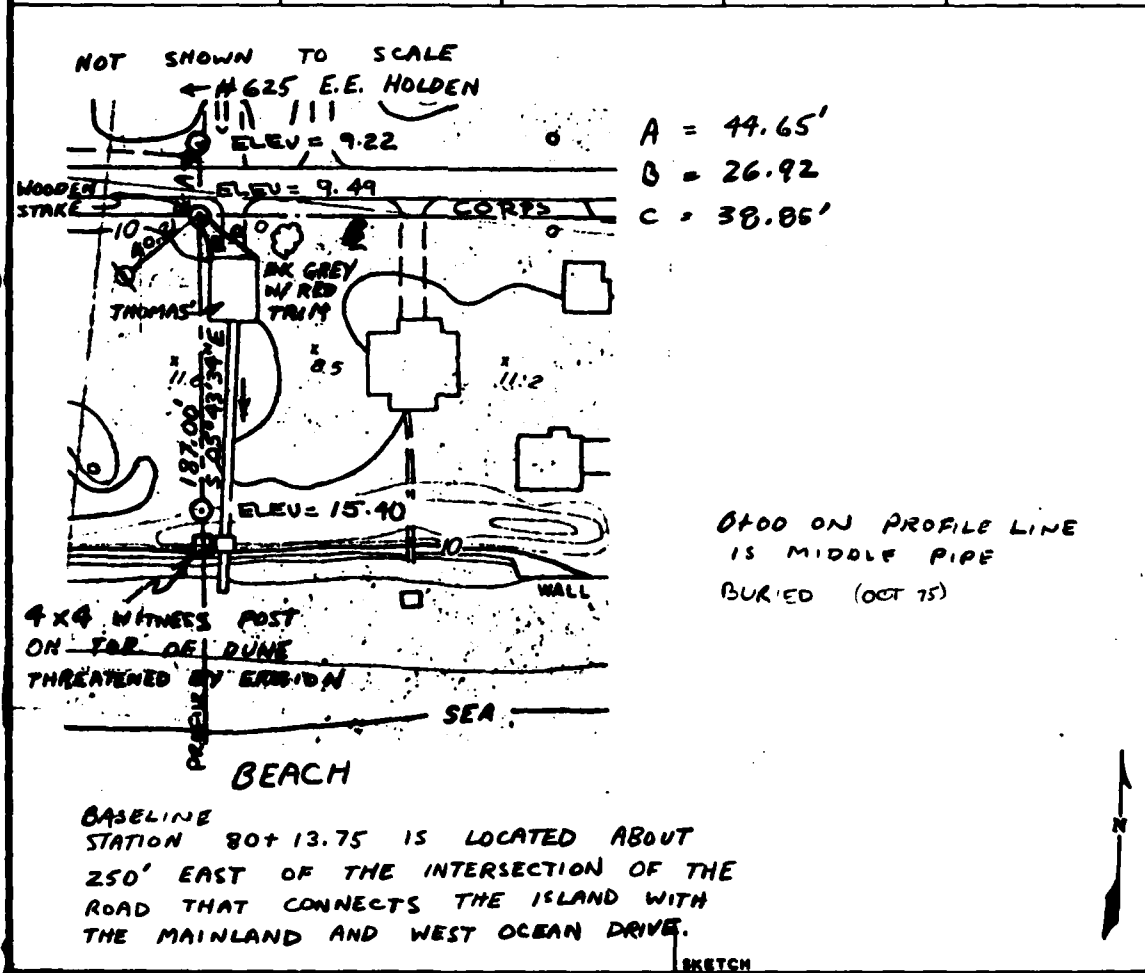 NOT SHOWN TO SCALE
← # 625 E.E. HOLDEN
ELEV = 9.22
A
WOODEN
STAKE
ELEV = 9.49
CORPS
10
B
DK GREY
W/ RED
TRIM
THOMAS'
8.5
11.2
187.00'
S 05° 43' 34" E
ELEV = 15.40
10
WALL
4 x 4 WITNESS POST
ON TOP OF DUNE
THREATENED BY EROSION
SEA
BEACH
A = 44.65'
B = 26.92
C = 38.85'
0+00 ON PROFILE LINE
IS MIDDLE PIPE
BURIED (OCT 75)
N
BASELINE
STATION 80+13.75 IS LOCATED ABOUT
250' EAST OF THE INTERSECTION OF THE
ROAD THAT CONNECTS THE ISLAND WITH
THE MAINLAND AND WEST OCEAN DRIVE.
SKETCH